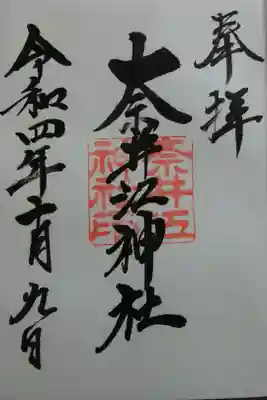 奉拝
奈井江神社
奈井江
神社印
令和四年十月九日